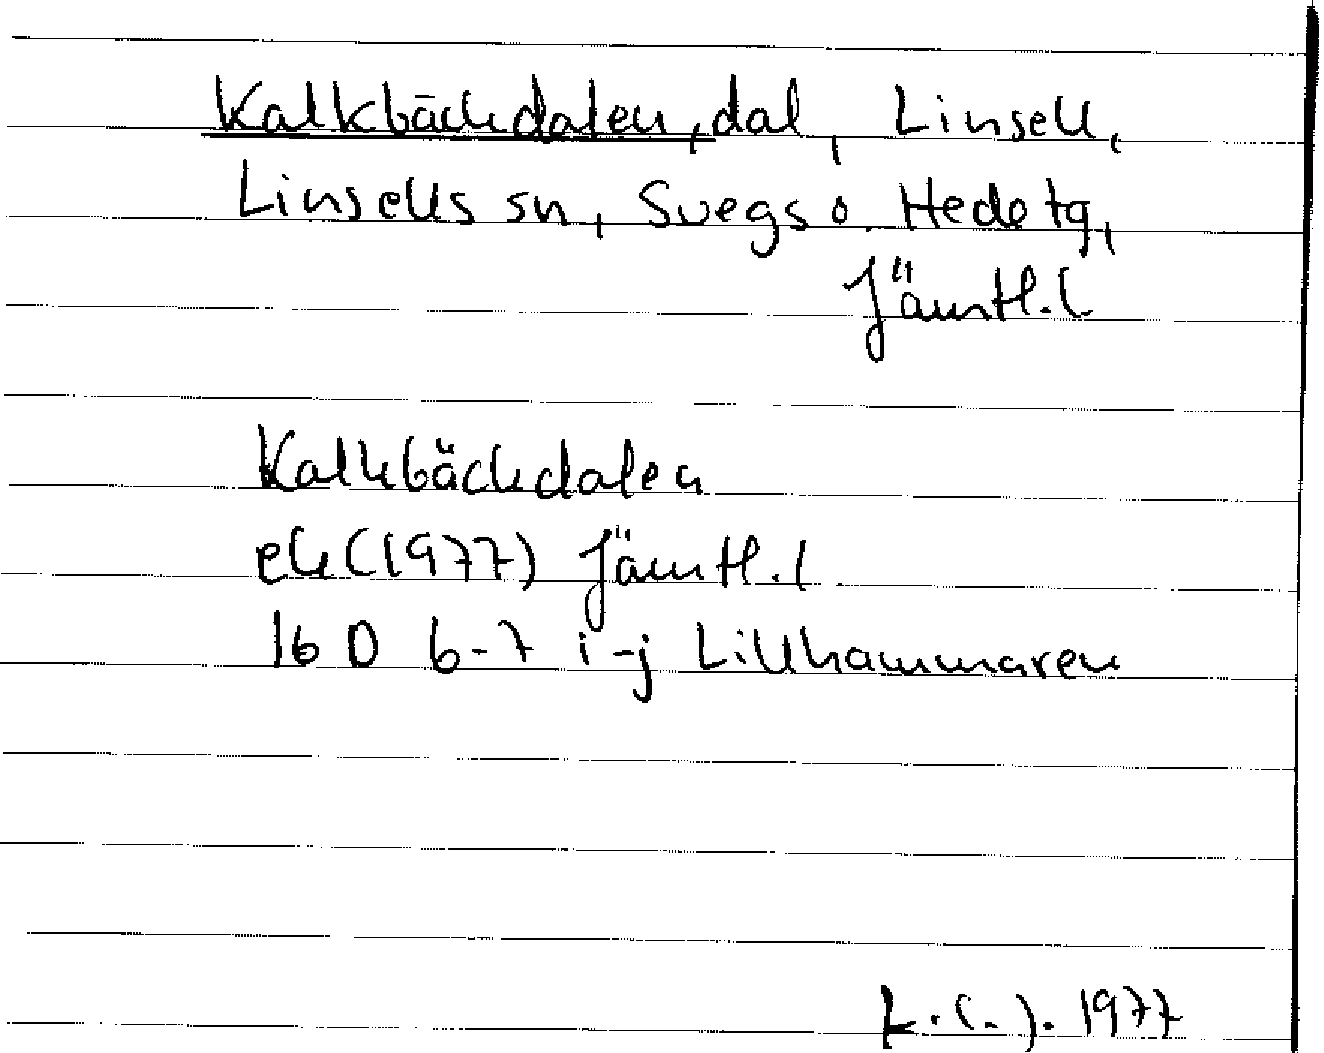 Kalkbäckdalen, dal, Linsell,
Linsells sn, Svegs o. Hede tg,
Jämtl. l
Kalkbäckdalen
ek (1977) Jämtl. l
16 D 6-7 i-j Lillhammaren
1977